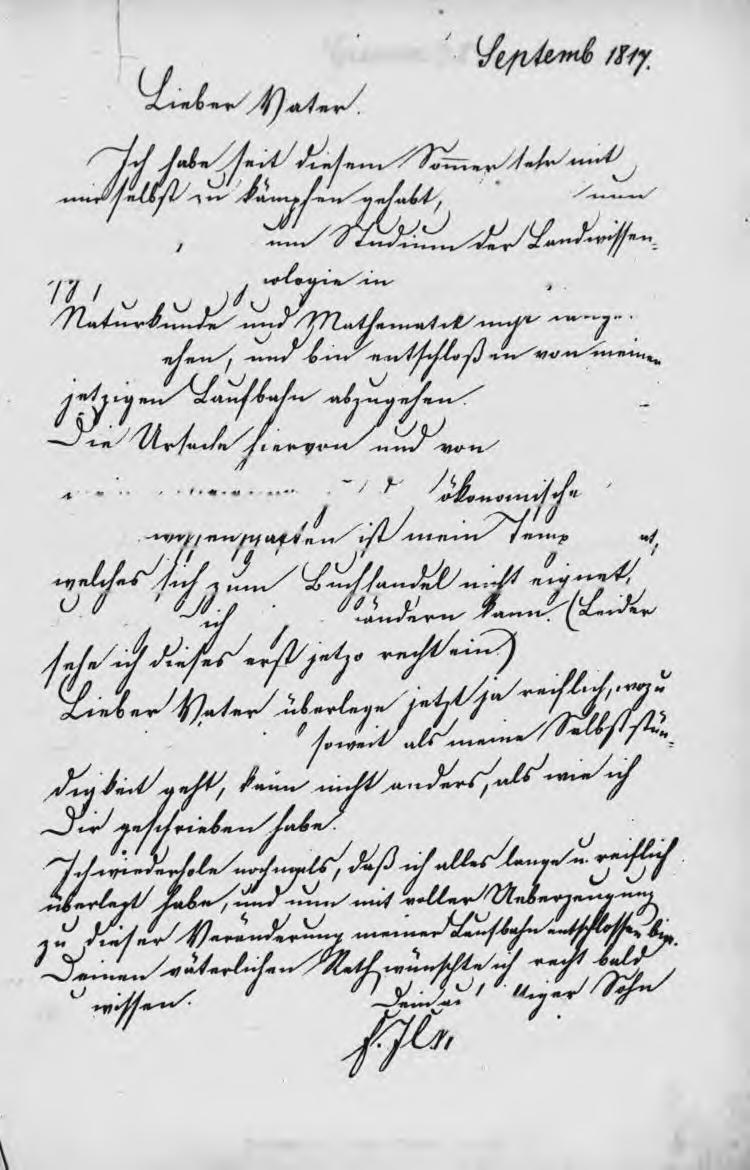 Septemb 1817.
Lieber Vater.
Ich habe seit diesem Sommer sehr mit
mir selbst zu kämpfen gehabt, nun
um Studium der Landwissen-
ologie in
Naturkunde und Mathematik
ehen, und bin entschloßen von meinen
jetzigen Laufbahn abzugehen.
Die Ursache hiervon und von
ökonomische
wissenschaften ist mein Temp at,
welches sich zum Buchhandel nicht eignet,
ich ändern kann. (Leider
sehe ich dieses erst jetzo recht ein.)
Lieber Vater überlege jetzt ja reiflich, wozu
soweit als meine Selbststän-
digkeit geht, kann nicht anders, als wie ich
Dir geschrieben habe.
Ich wiederhole nochmals, daß ich alles lange u. reiflich
überlegt habe, und nun mit voller Ueberzeugung
zu dieser Veränderung meiner Laufbahn entschlossen bin.
Deinen väterlichen Rath wünschte ich recht bald
wissen. Dein tiger Sohn